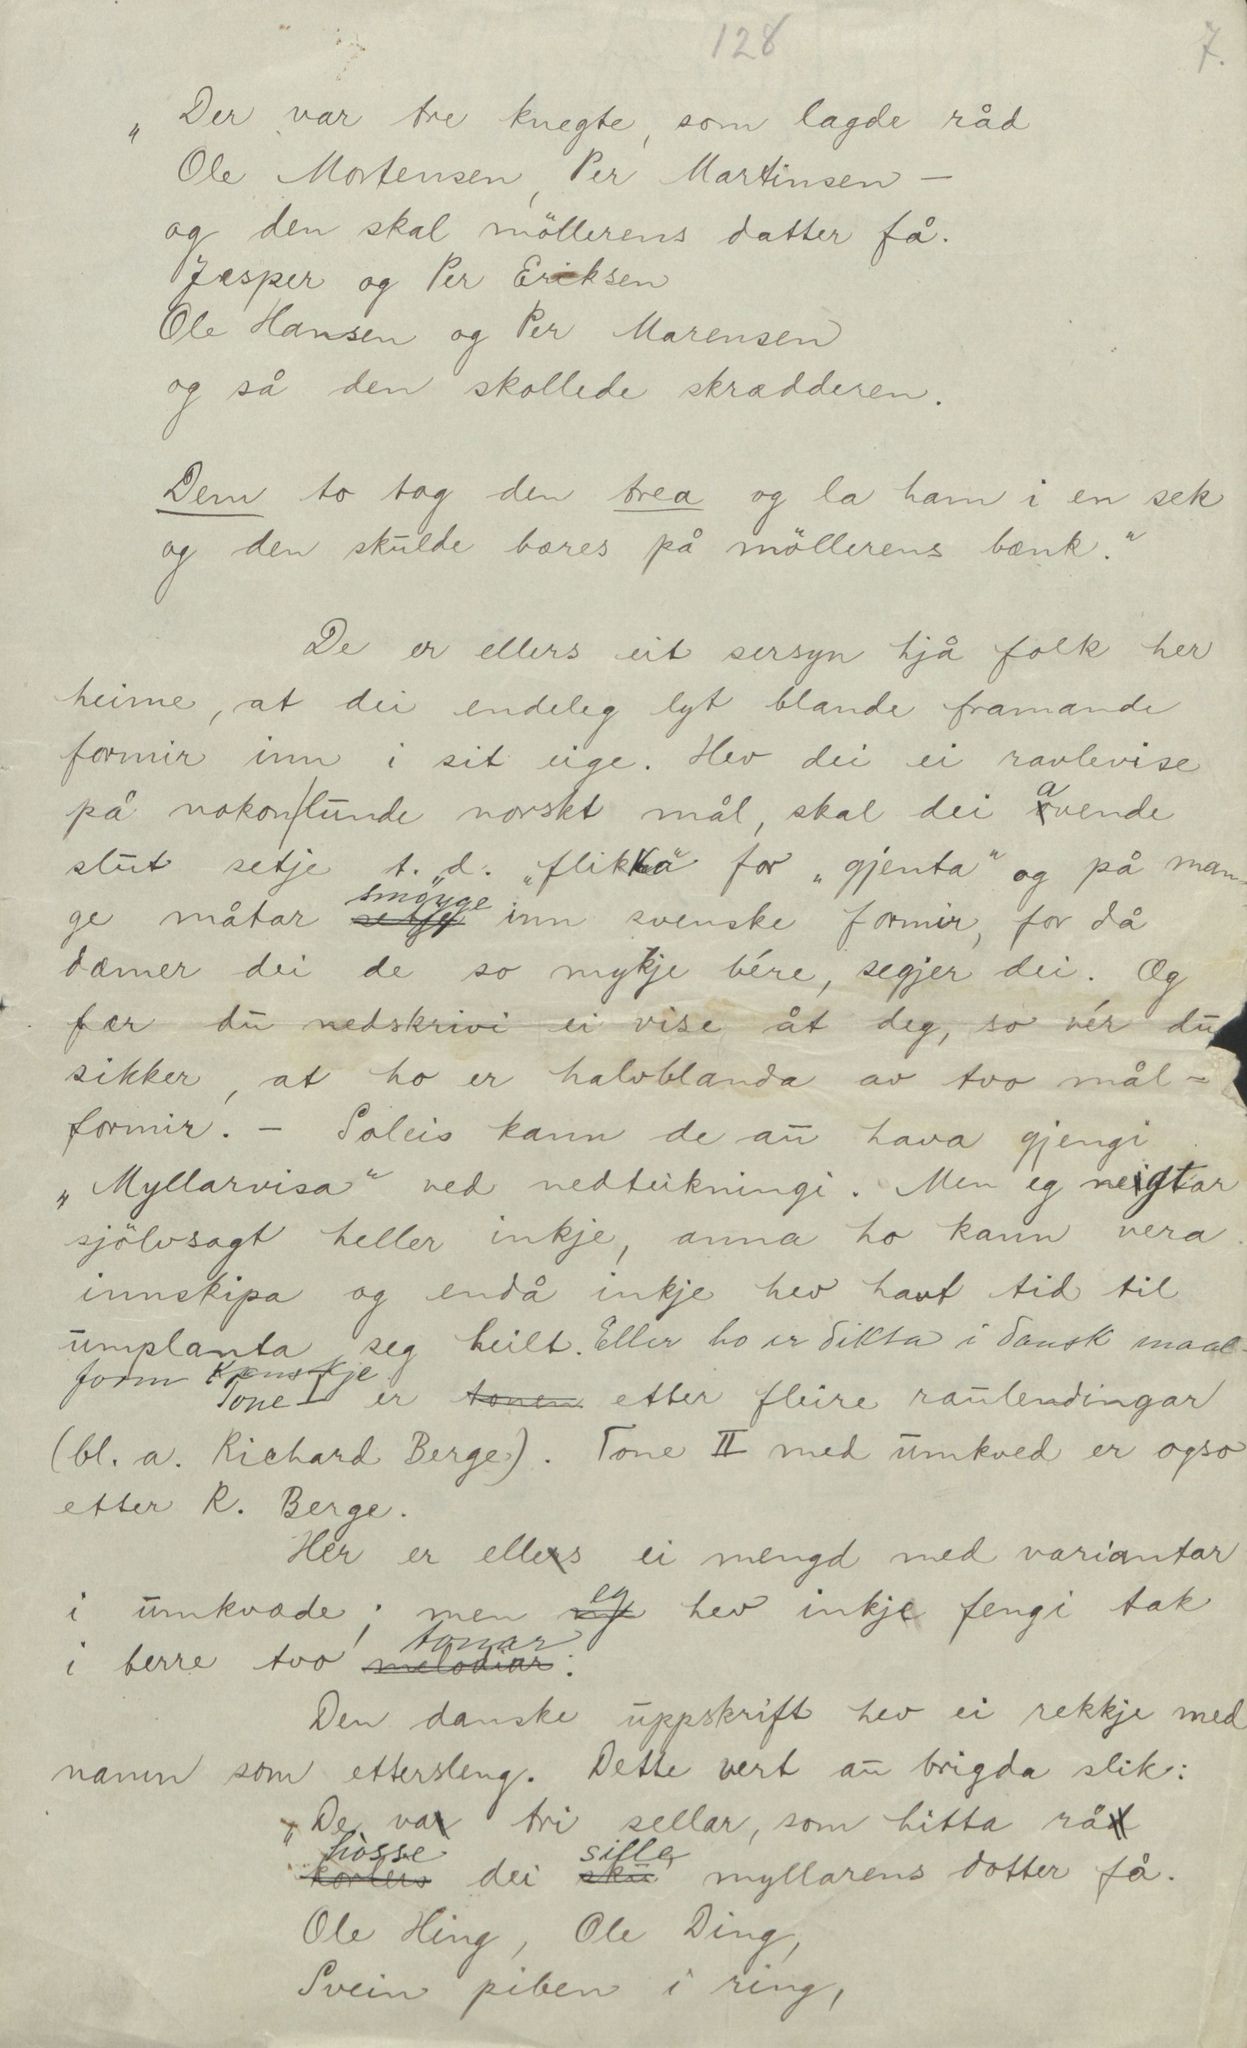 128 7.
„Der var tre knegte, som lagde råd
Ole Mortensen, Per Martinsen –
og den skal möllerens datter få.
Jesper og Per Eriksen
Ole Hansen og Per Marensen
og så den skollede skrædderen.
Dem to tog den trea og la ham i en sek
og den skulde bæres på möllerens bænk."
De er ellers eit sersyn hjå folk her
heime, at dei endeleg lyt blande framande
formir inn i sit eige. Hev dei ei ravlevise
på nokonlunde norskt mål, skal dei avende
slut setje t. d. „flikka" for „gjenta" og på man-
ge måtar smöyge inn svenske formir, for då
dæmer dei de so mykje bére, segjer dei. Og
fær du nedskrivi ei vise åt deg, so vér du
sikker, at ho er halvblanda av tvo mål-
formir. – Soleis kann de au hava gjengi
„Myllarvisa" ved nedteikningi. Men eg neigtar
sjölvsagt heller inkje, anna ho kann vera
innskipa og endå inkje hev havt tid til
umplanta seg heilt. Eller ho er dikta i dansk maal-
form kanskje
Tone I er etter fleire raulendingar
(bl. a. Richard Berge). Tone II med umkved er ogso
etter R. Berge.
Her er elles ei mengd med variantar
i umkvæde; men eg hev inkje fengi tak
i berre tvo tonar.
Den danske uppskrift hev ei rekkje med
namn som ettersleng. Dette vert au brigda slik:
„De va tri sellar, som hitta rå
hosse dei sille myllarens dotter få.
Ole Hing, Ole Ding,
Svein piben i ring,